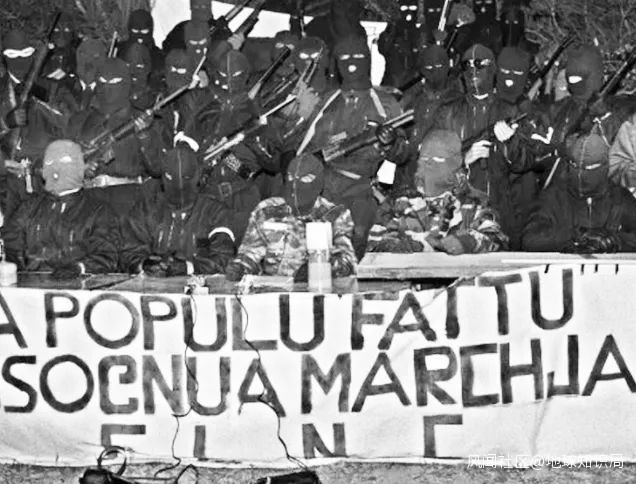 A POPULU FATTU
SOGNUA MARCHJA
F L N C
风闻社区@地球知识局